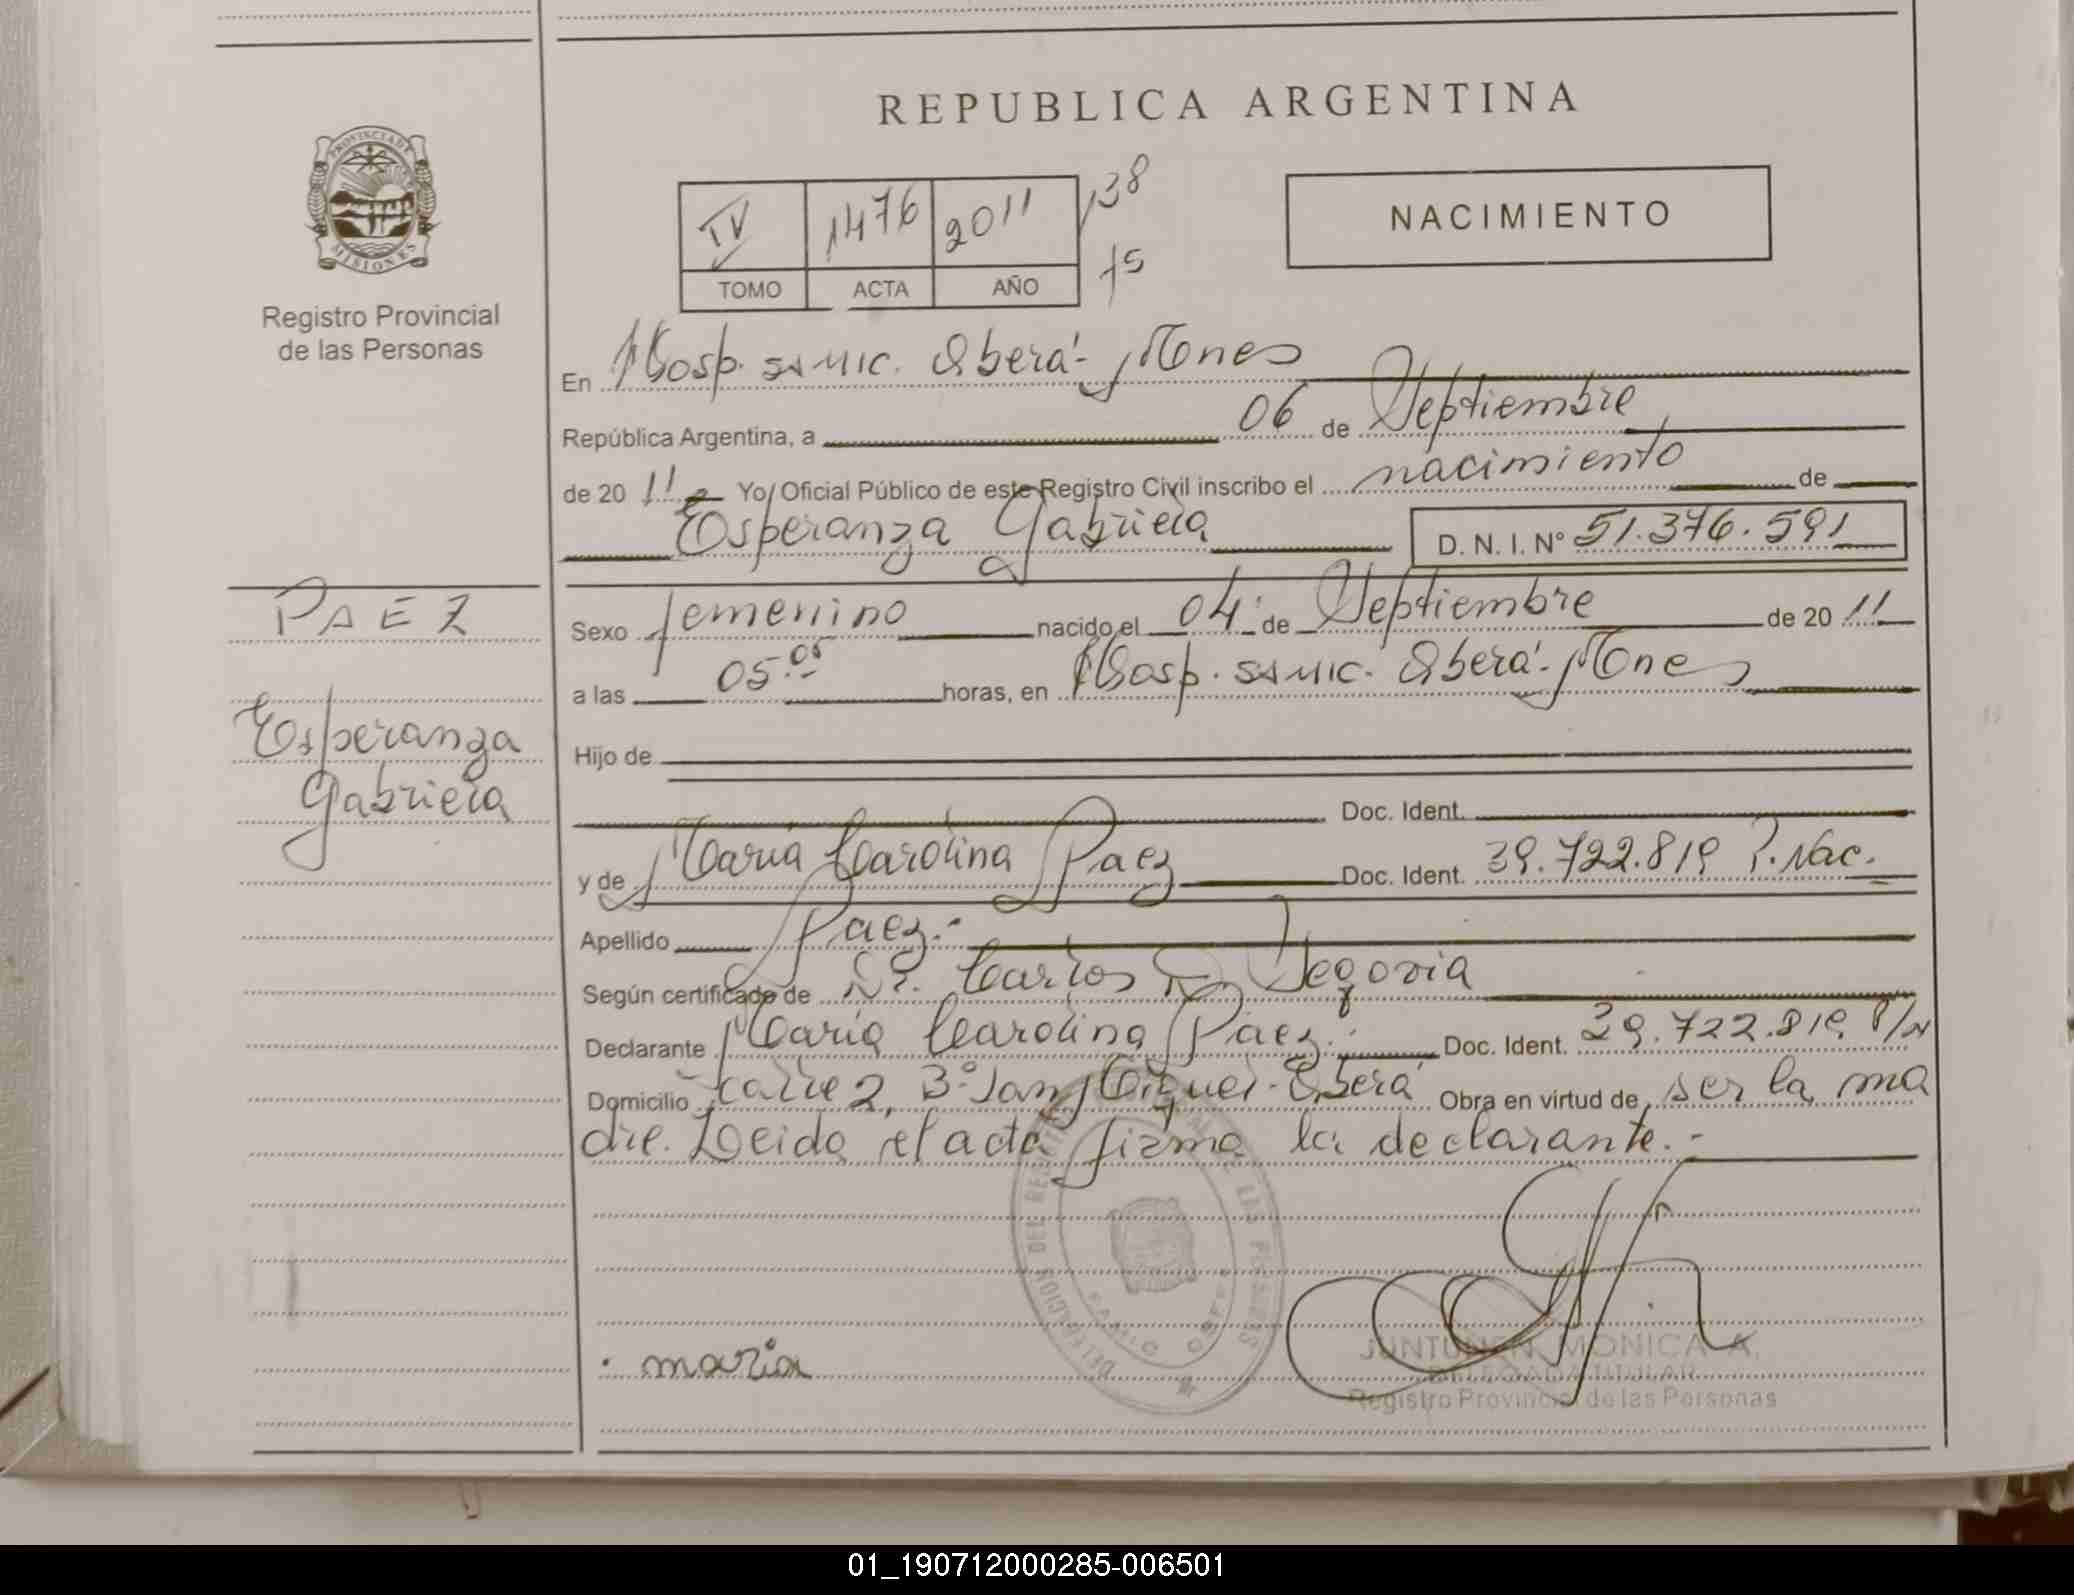 REPUBLICA ARGENTINA
PROVINCIA DE MISIONES
Registro Provincial
de las Personas
IV 1476 2011 138
TOMO ACTA AÑO 75
NACIMIENTO
En Hosp. SAMIC. Oberá - Mnes
República Argentina, a 06 de Septiembre
de 2011 Yo, Oficial Público de este Registro Civil inscribo el nacimiento de
Esperanza Gabriela D. N. I. Nº 51.376.591
PAEZ
Esperanza
Gabriela
Sexo femenino nacido el 04 de Septiembre de 2011
a las 05:05 horas, en Hosp. SAMIC. Oberá - Mnes
Hijo de
Doc. Ident.
y de María Carolina Paez Doc. Ident. 39.722.819 P. Nac.
Apellido Paez.-
Según certificado de Dr. Carlos Segovia
Declarante María Carolina Paez. Doc. Ident. 39.722.819 P/N
Domicilio calle 2, Bº San Miguel - Oberá Obra en virtud de ser la ma
dre. Leida el acta firma la declarante.-
maria
JUNTUNEN, MONICA A.
DELEGADA TITULAR
Registro Provincial de las Personas
01_190712000285-006501